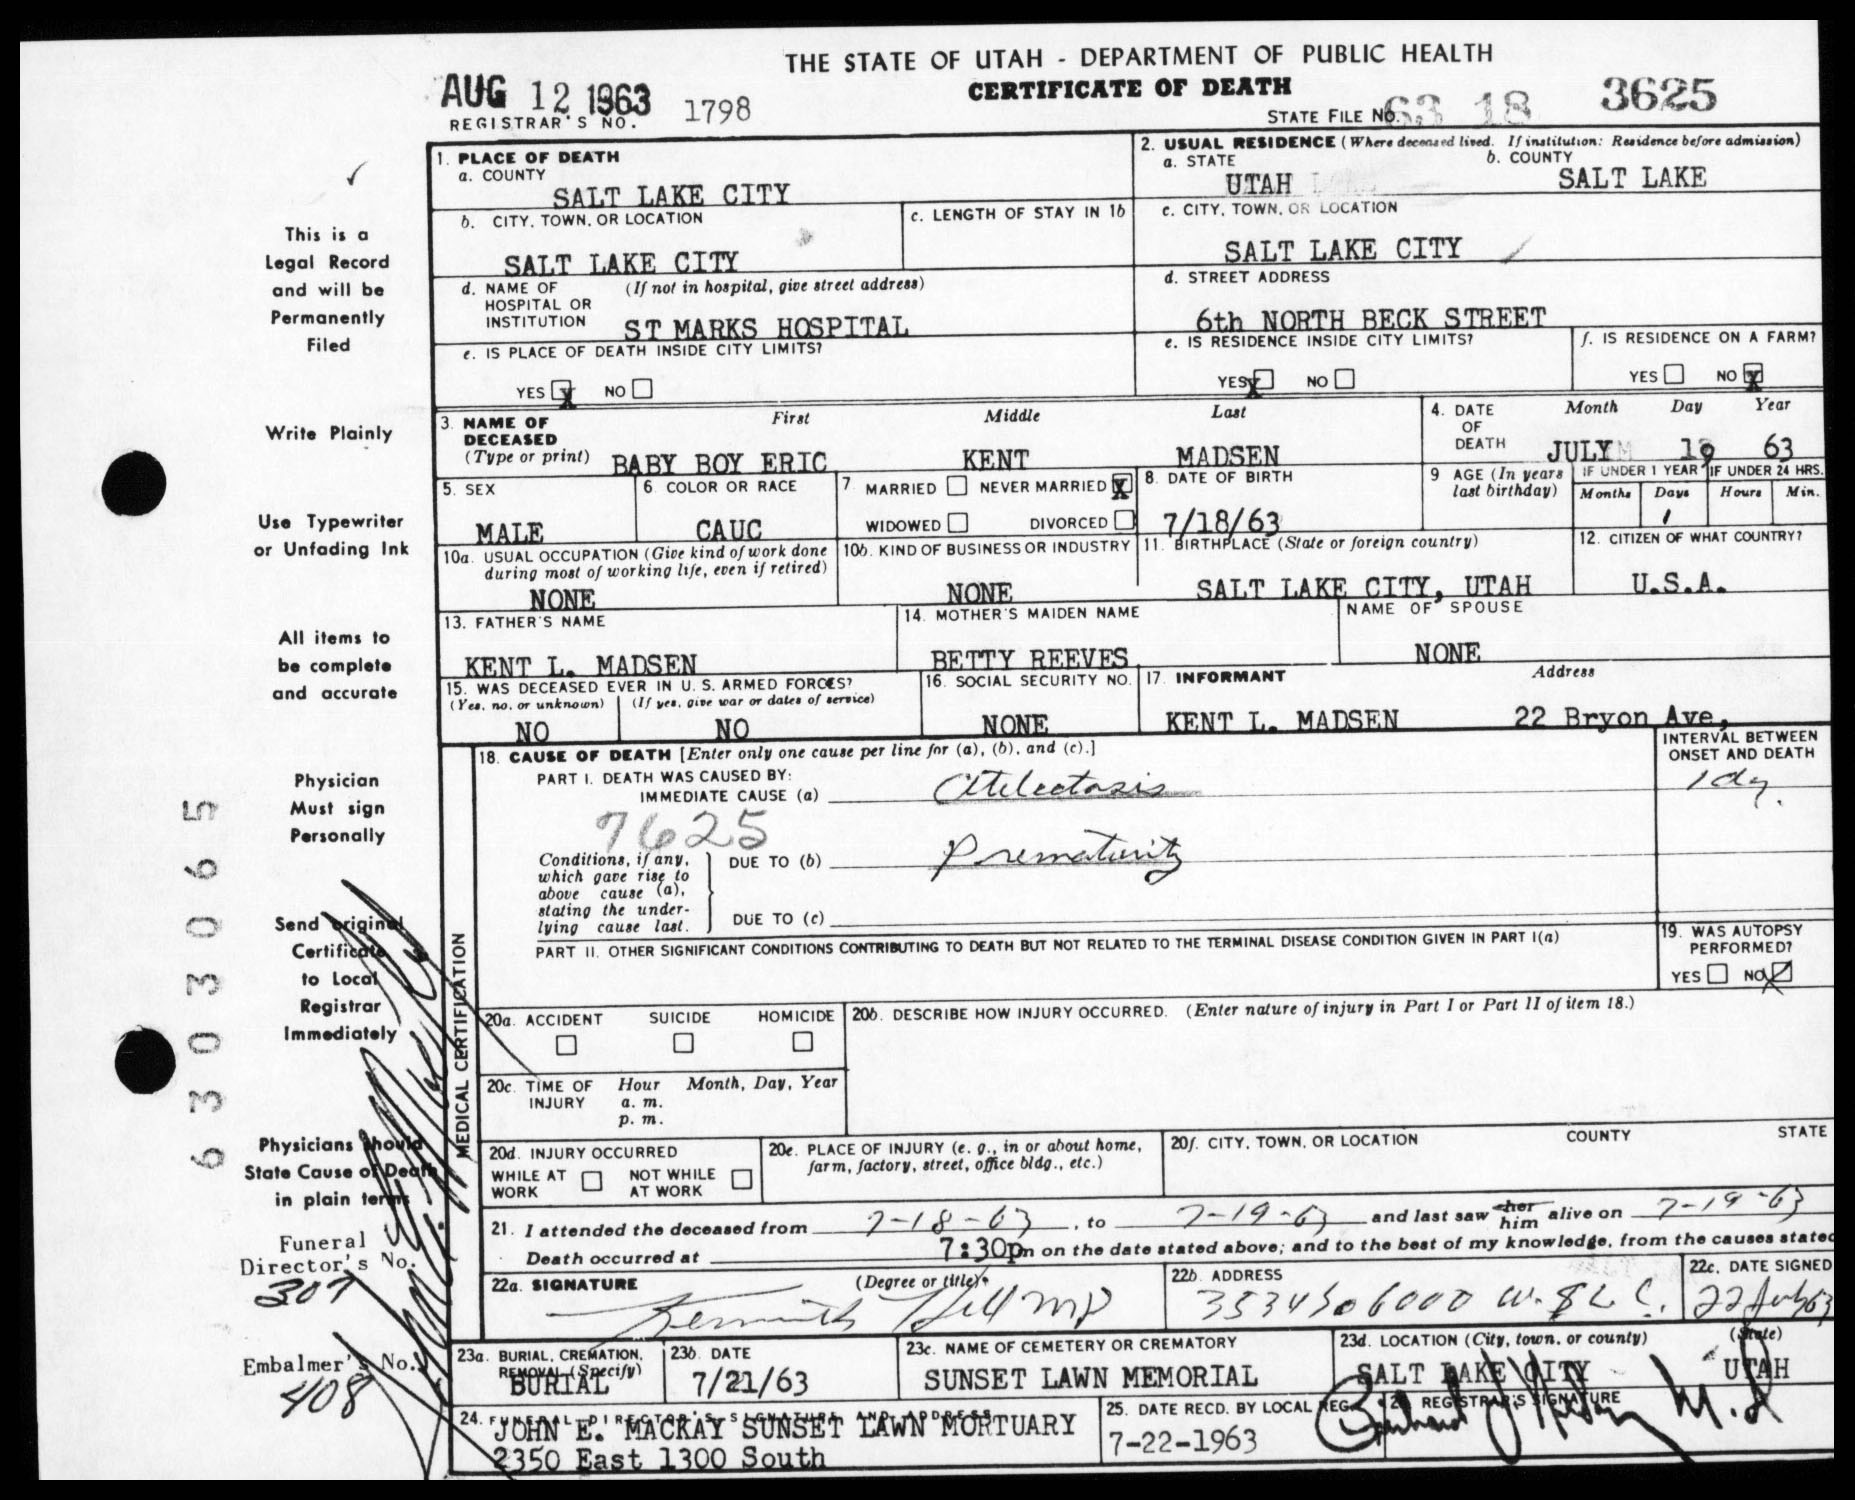 THE STATE OF UTAH - DEPARTMENT OF PUBLIC HEALTH
CERTIFICATE OF DEATH
AUG 12 1963
REGISTRAR'S NO. 1798
STATE FILE NO. 63 18 3625
This is a
Legal Record
and will be
Permanently
Filed
Write Plainly
Use Typewriter
or Unfading Ink
All items to
be complete
and accurate
Physician
Must sign
Personally
Send original
Certificate
to Local
Registrar
Immediately
Physicians should
State Cause of Death
in plain terms
Funeral
Director's No.
307
Embalmer's No.
408
6303065
1. PLACE OF DEATH
a. COUNTY
SALT LAKE CITY
b. CITY, TOWN, OR LOCATION
SALT LAKE CITY
c. LENGTH OF STAY IN 1b
d. NAME OF HOSPITAL OR INSTITUTION (If not in hospital, give street address)
ST MARKS HOSPITAL
e. IS PLACE OF DEATH INSIDE CITY LIMITS?
YES X NO
2. USUAL RESIDENCE (Where deceased lived. If institution: Residence before admission)
a. STATE
UTAH
b. COUNTY
SALT LAKE
c. CITY, TOWN, OR LOCATION
SALT LAKE CITY
d. STREET ADDRESS
6th NORTH BECK STREET
e. IS RESIDENCE INSIDE CITY LIMITS?
YES X NO
f. IS RESIDENCE ON A FARM?
YES NO X
3. NAME OF DECEASED (Type or print)
First Middle Last
BABY BOY ERIC KENT MADSEN
4. DATE OF DEATH Month Day Year
JULY 19 63
5. SEX
MALE
6. COLOR OR RACE
CAUC
7. MARRIED NEVER MARRIED X
WIDOWED DIVORCED
8. DATE OF BIRTH
7/18/63
9 AGE (In years last birthday)
IF UNDER 1 YEAR IF UNDER 24 HRS.
Months Days Hours Min.
1
10a. USUAL OCCUPATION (Give kind of work done during most of working life, even if retired)
NONE
10b. KIND OF BUSINESS OR INDUSTRY
NONE
11. BIRTHPLACE (State or foreign country)
SALT LAKE CITY, UTAH
12. CITIZEN OF WHAT COUNTRY?
U.S.A.
13. FATHER'S NAME
KENT L. MADSEN
14. MOTHER'S MAIDEN NAME
BETTY REEVES
NAME OF SPOUSE
NONE
15. WAS DECEASED EVER IN U.S. ARMED FORCES?
(Yes, no, or unknown) (If yes, give war or dates of service)
NO NO
16. SOCIAL SECURITY NO.
NONE
17. INFORMANT Address
KENT L. MADSEN 22 Bryon Ave,
MEDICAL CERTIFICATION
18. CAUSE OF DEATH [Enter only one cause per line for (a), (b), and (c).]
INTERVAL BETWEEN ONSET AND DEATH
PART I. DEATH WAS CAUSED BY:
IMMEDIATE CAUSE (a) Atelectasis 1 dy.
7625
Conditions, if any, which gave rise to above cause (a), stating the underlying cause last.
DUE TO (b) Prematurity
DUE TO (c)
PART II. OTHER SIGNIFICANT CONDITIONS CONTRIBUTING TO DEATH BUT NOT RELATED TO THE TERMINAL DISEASE CONDITION GIVEN IN PART I(a)
19. WAS AUTOPSY PERFORMED?
YES NO X
20a. ACCIDENT SUICIDE HOMICIDE
20b. DESCRIBE HOW INJURY OCCURRED. (Enter nature of injury in Part I or Part II of item 18.)
20c. TIME OF INJURY Hour Month, Day, Year
a. m.
p. m.
20d. INJURY OCCURRED
WHILE AT WORK NOT WHILE AT WORK
20e. PLACE OF INJURY (e. g., in or about home, farm, factory, street, office bldg., etc.)
20f. CITY, TOWN, OR LOCATION COUNTY STATE
21. I attended the deceased from 7-18-63, to 7-19-63 and last saw her him alive on 7-19-63
Death occurred at 7:30p m on the date stated above; and to the best of my knowledge, from the causes stated
22a. SIGNATURE (Degree or title)
Kenneth Hill MD
22b. ADDRESS
3534 So 6000 W. SLC.
22c. DATE SIGNED
22 July 63
23a. BURIAL, CREMATION, REMOVAL (Specify)
BURIAL
23b. DATE
7/21/63
23c. NAME OF CEMETERY OR CREMATORY
SUNSET LAWN MEMORIAL
23d. LOCATION (City, town, or county) (State)
SALT LAKE CITY UTAH
24. FUNERAL DIRECTOR'S SIGNATURE AND ADDRESS
JOHN E. MACKAY SUNSET LAWN MORTUARY
2350 East 1300 South
25. DATE RECD. BY LOCAL REG.
7-22-1963
REGISTRAR'S SIGNATURE
M.D